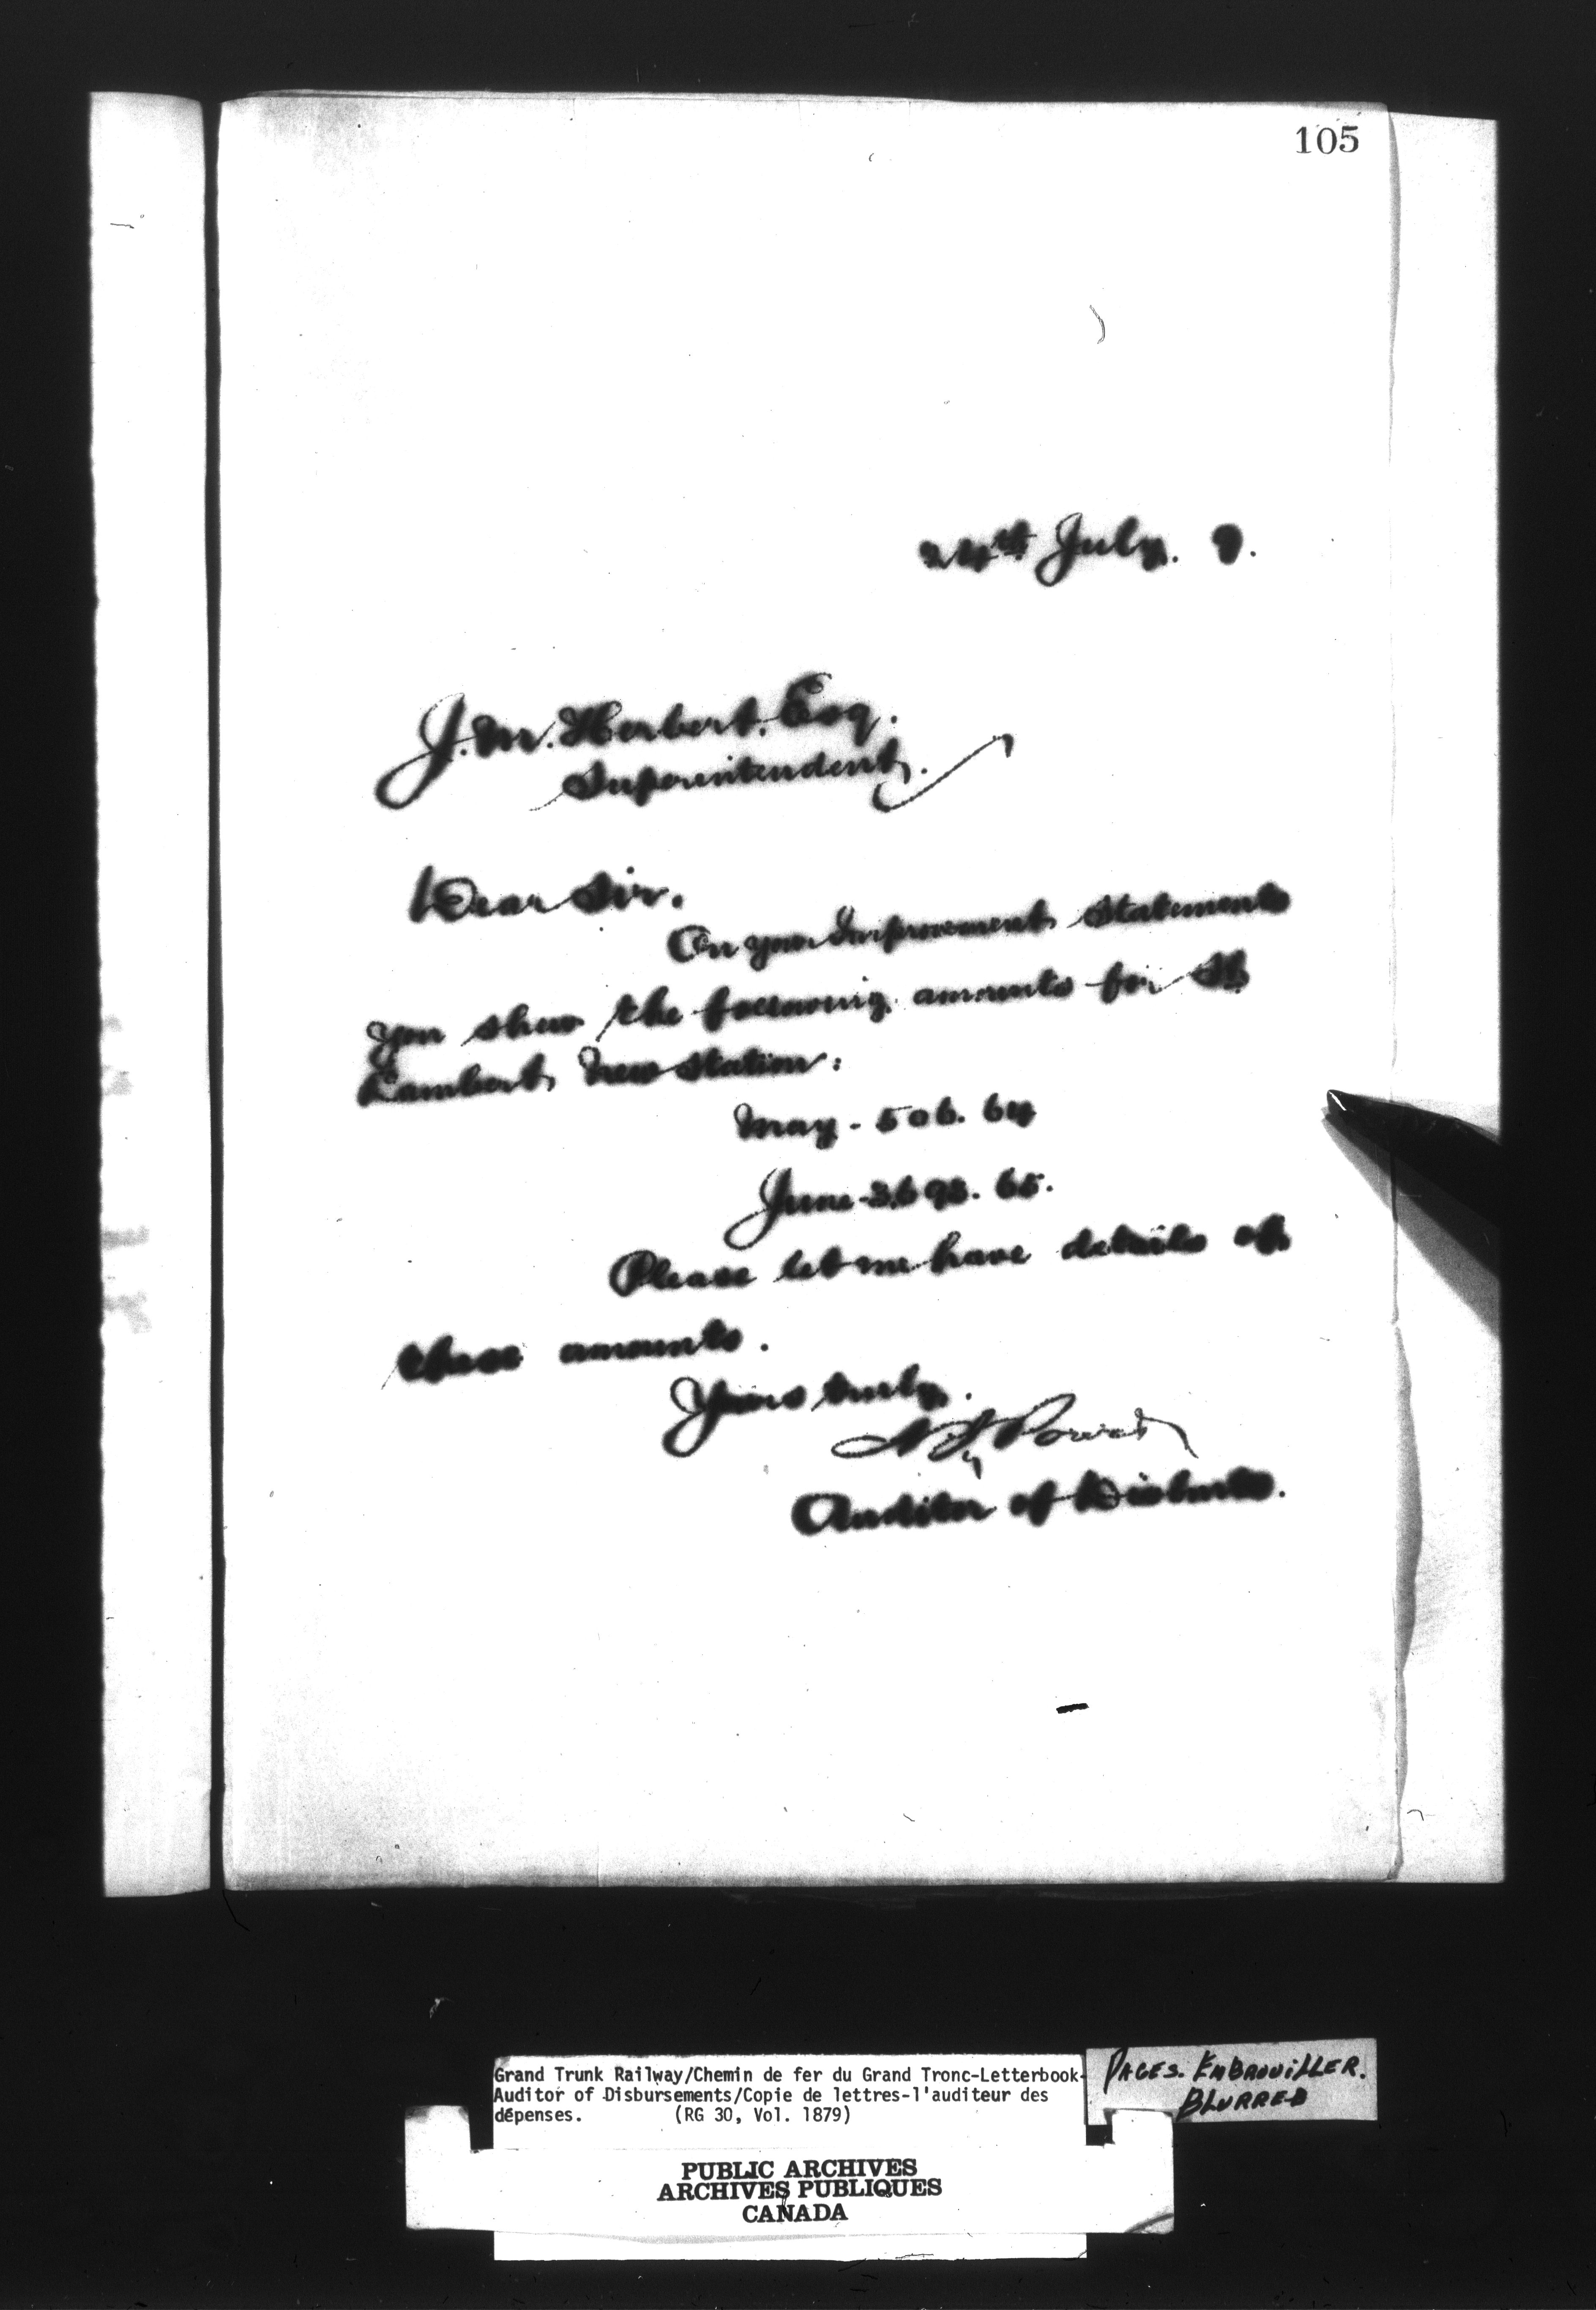 105
24th July. 9.
J. M. Herbert. Esq.
Superintendent.
Dear Sir.
On your Improvement Statements
you show the following amounts for St
Lambert New Station:
May - 506. 64
June - 3,698. 65.
Please let me have details of
these amounts.
Yours truly.
Power
Auditor of Disbursts.
Grand Trunk Railway/Chemin de fer du Grand Tronc-Letterbook-
Auditor of Disbursements/Copie de lettres-l'auditeur des
dépenses. (RG 30, Vol. 1879)
PAGES. EMBROUiLLER.
BLURRED
PUBLIC ARCHIVES
ARCHIVES PUBLIQUES
CANADA